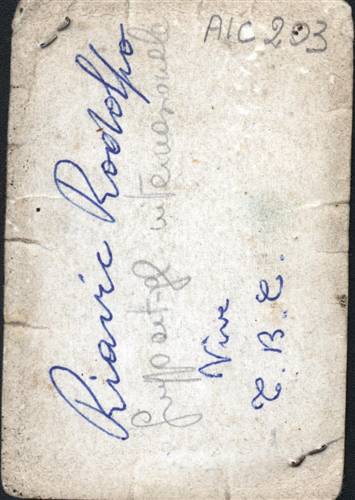 AIC 203
Riavic Rodolfo
internazionale
Vive
T. B. C.